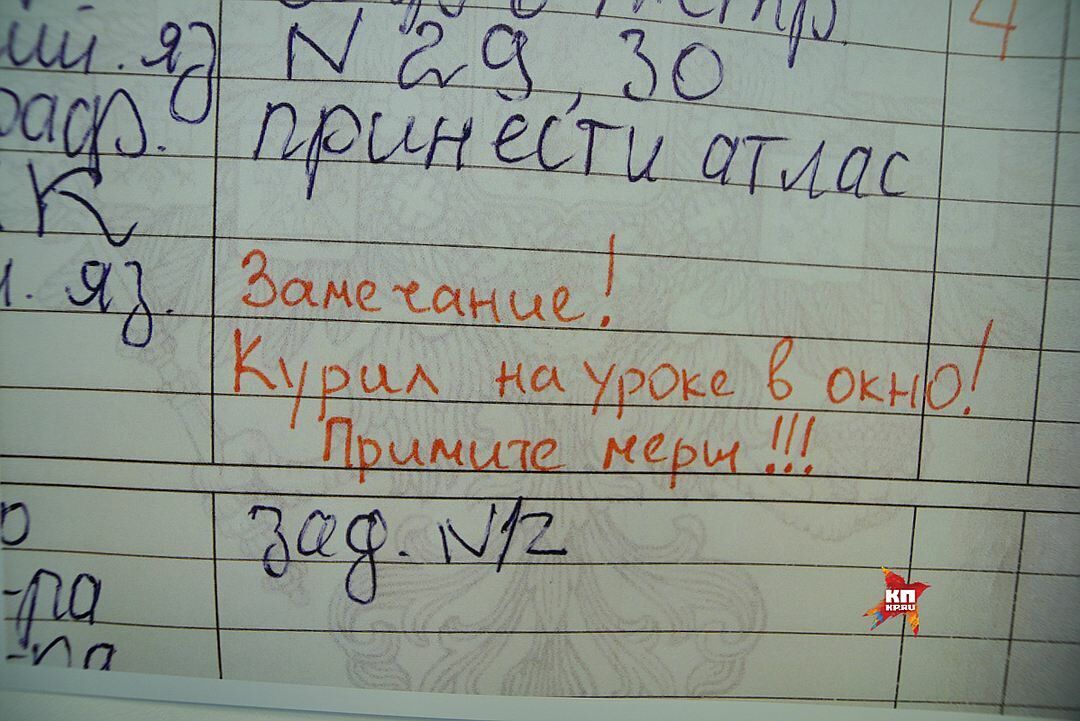 яз N 29, 30
принести атлас
К
яз. Замечание!
Курил на уроке в окно!
Примите меры!!!
зад. N12
-ра
-ра
КП
KP.RU
4